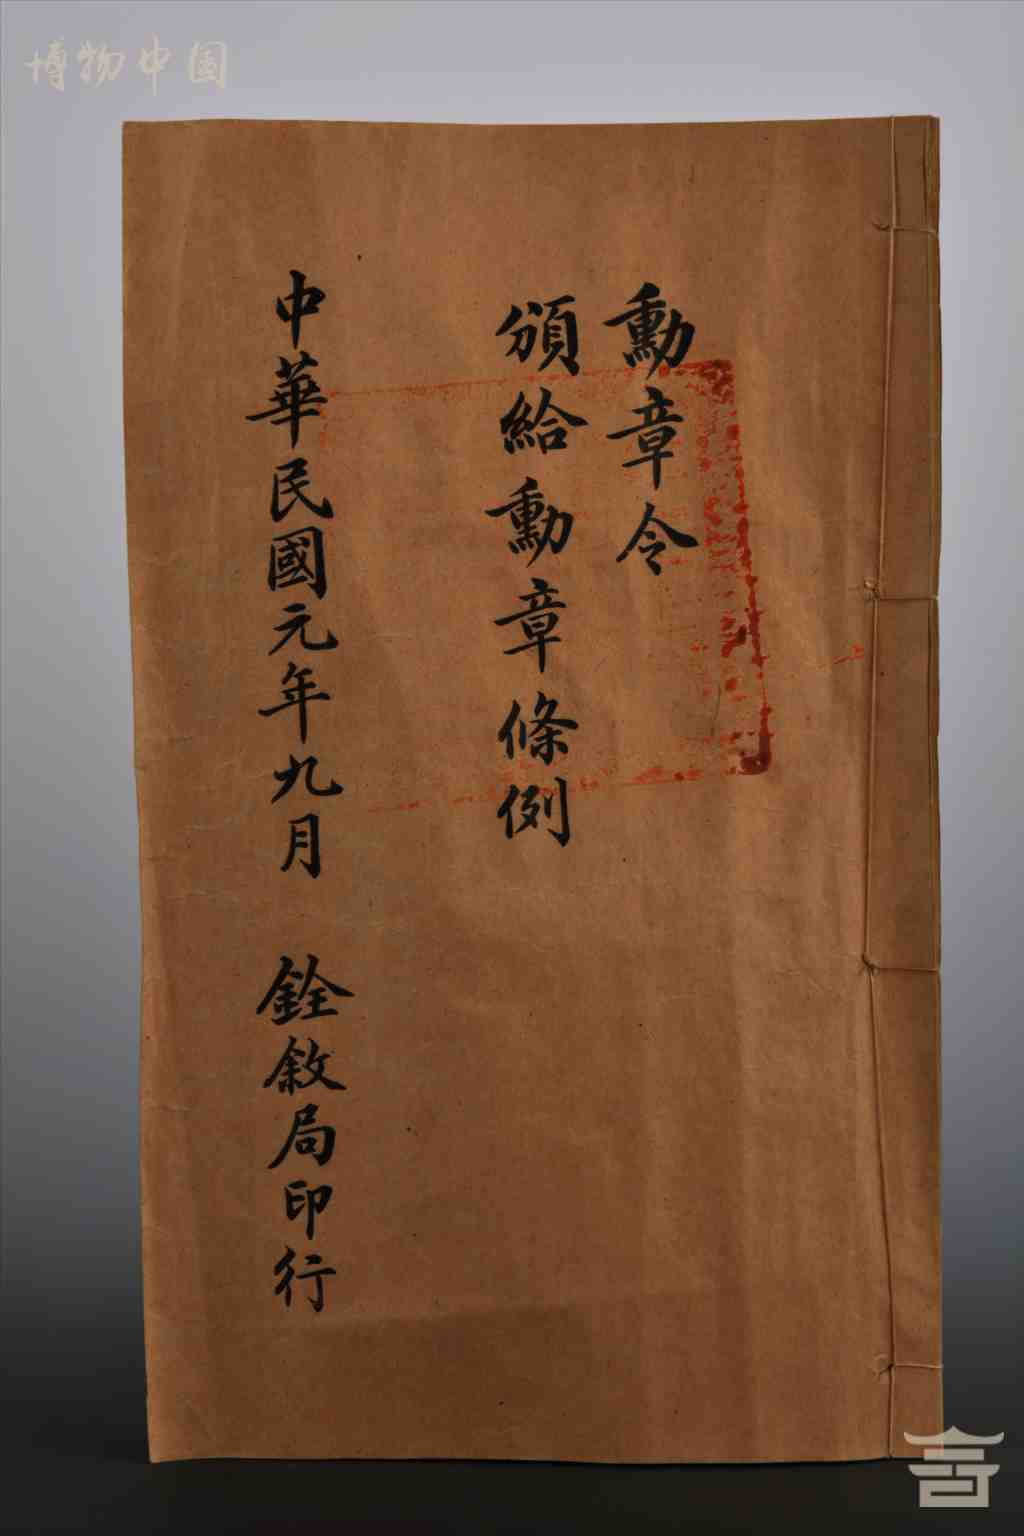 博物中国
勳章令
頒給勳章條例
中華民國元年九月 銓敘局印行